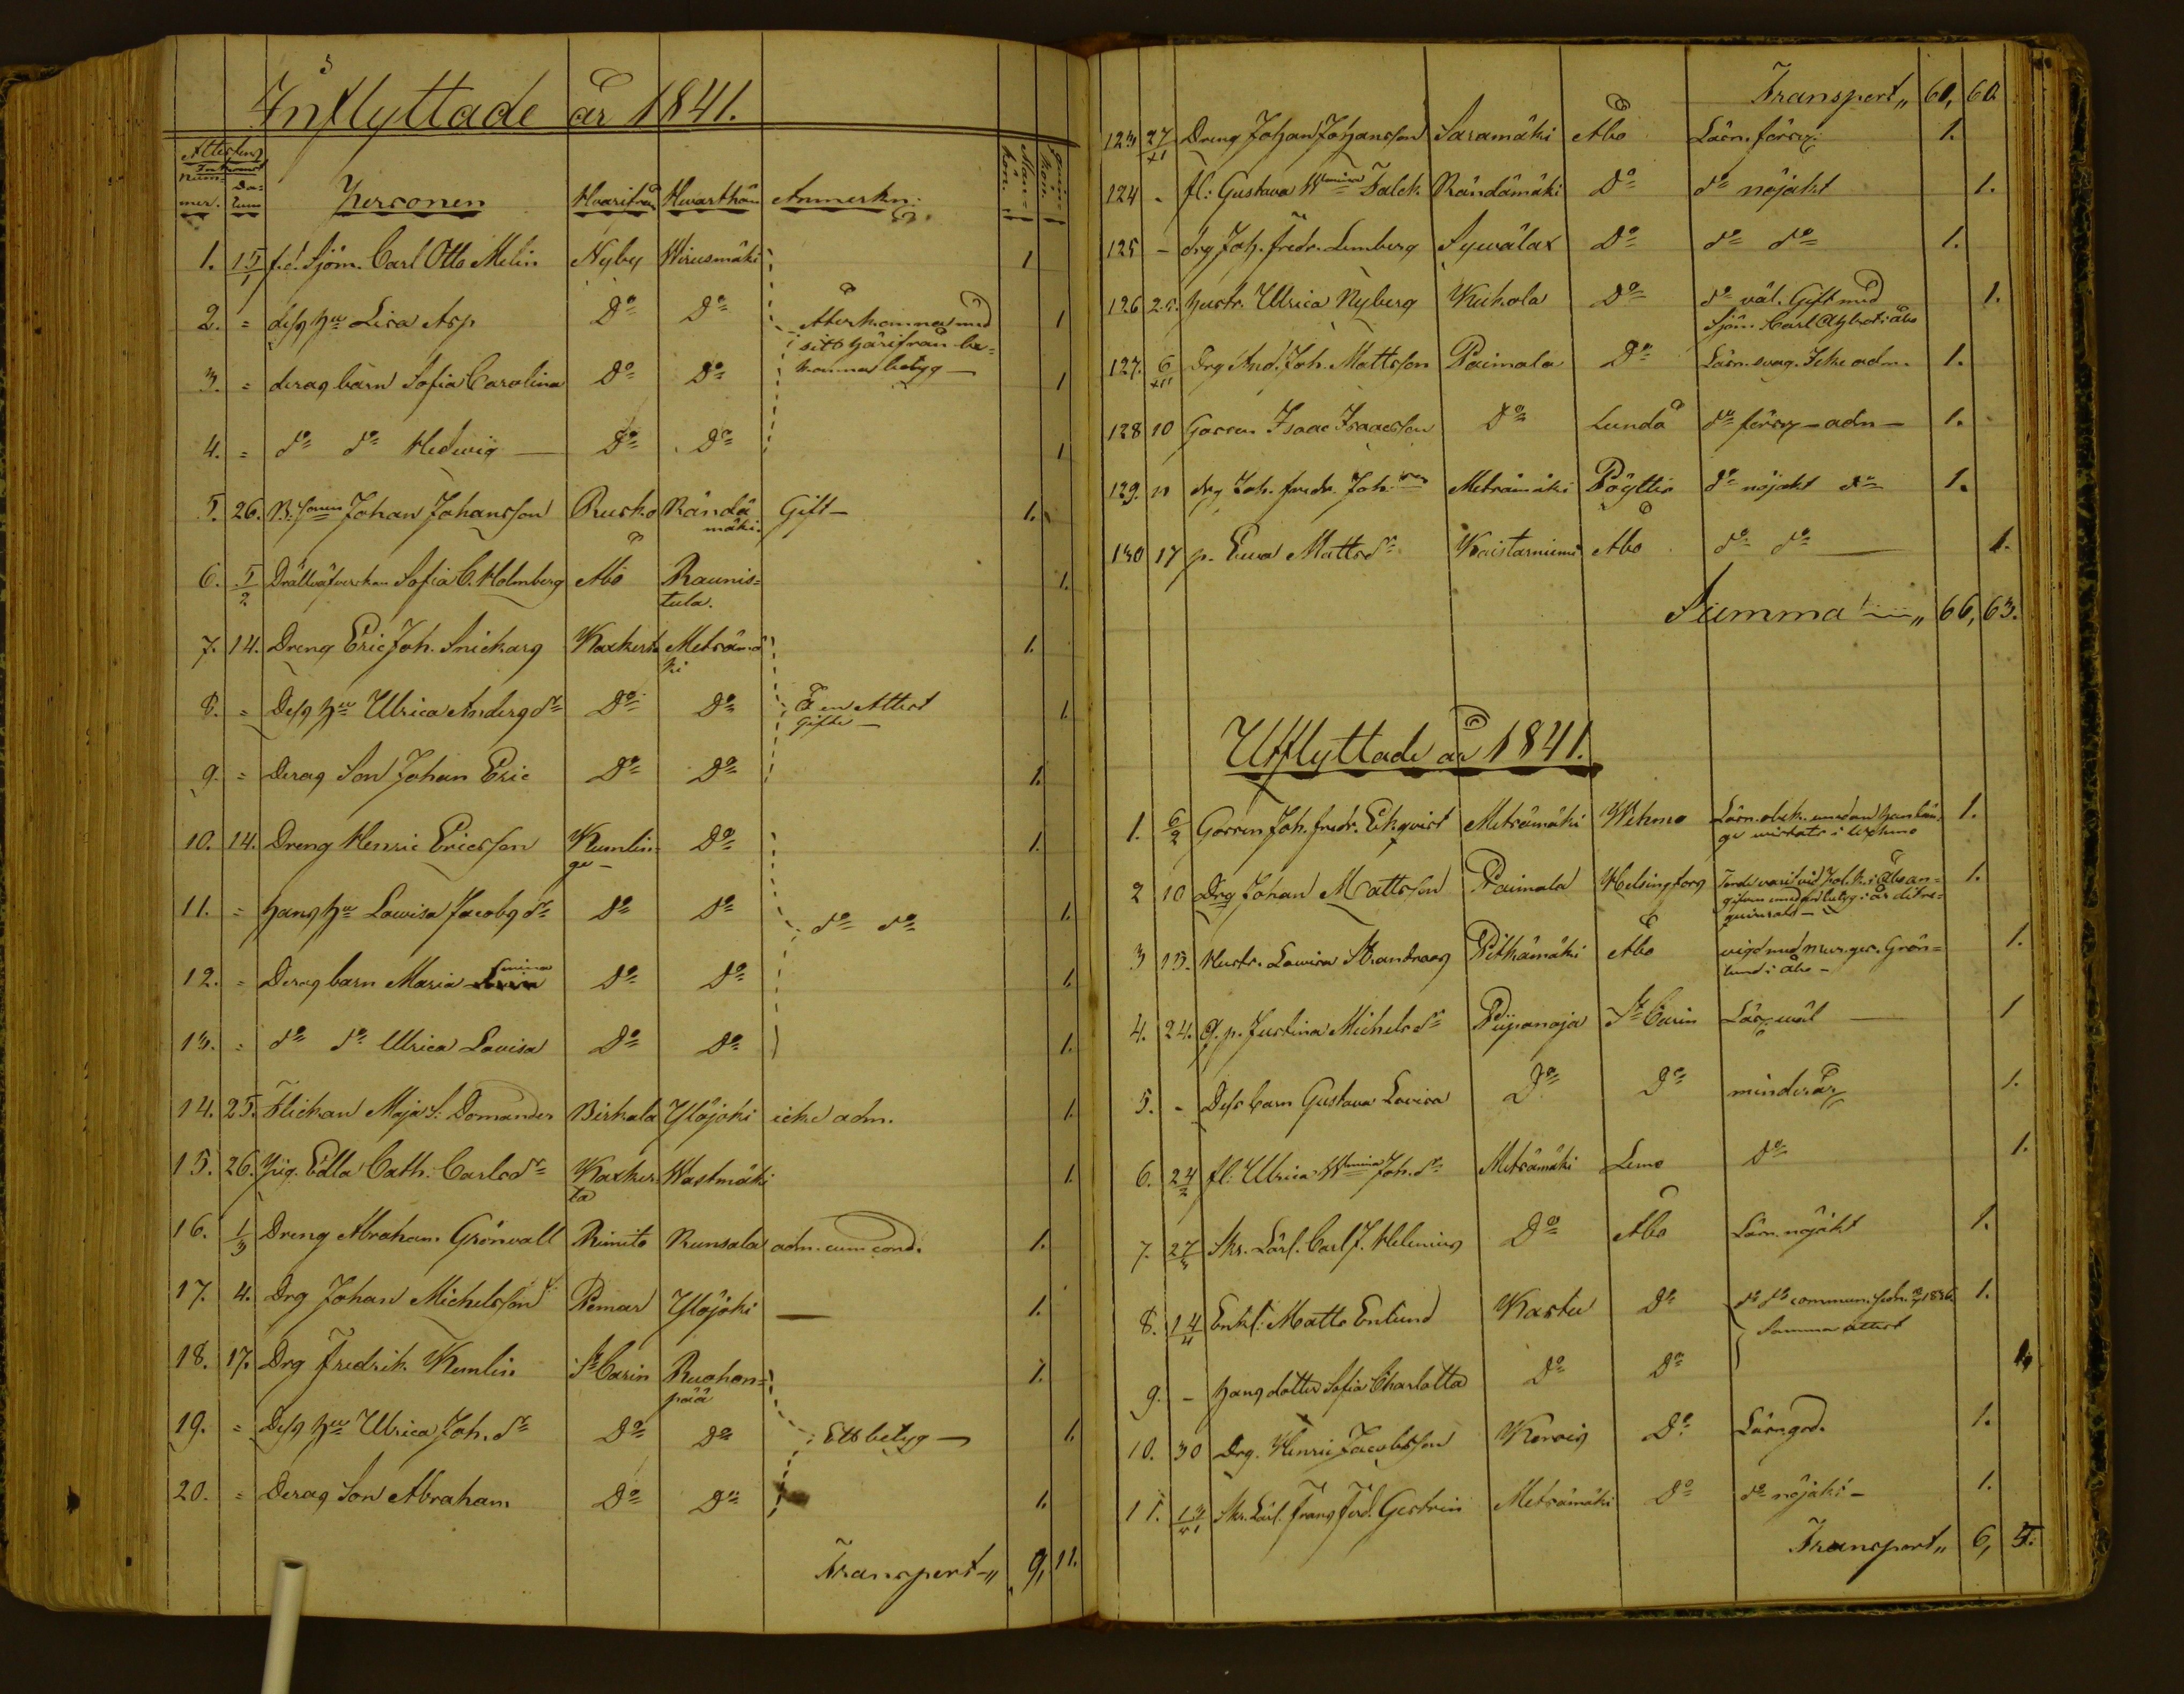 Inflyttade år 1841.
Attestens
Num- mer. Da- tum Personen Hvarifrån Hwarthän Anmerkn: Mankön. Quinkön.
1. 15/1 f.d. Sjöm. Carl Otto Melin Nyby Wirusmäki 1
2. = dess hu Lisa Asp Do Do Återkomna med 1
sitt härifrån be-
3. = deras barn Sofia Carolina Do Do komna betyg — 1
4. = do do Hedwig — Do Do 1
5. 26. B. Sonen Johan Johansson Rusko Rändä Gift — 1.
mäki.
6. 5/2 Drällväfverskan Sofia C. Holmberg Åbo Raunis- 1.
tula.
7. 14. Dreng Eric Joh. Snickars Maskerts Metsämä 1.
ki
8. = Dess hu Ulrica Andersdr Do Do På en Attest 1.
Gifte —
9. = Deras Son Johan Eric Do Do 1.
10. 14. Dreng Henric Ericsson Kumlin- Do 1.
ge —
11. = hans hu Lowisa Jacobsdr Do Do do do 1.
12. = Deras barn Maria Do Do 1.
13. = do do Ulrica Lovisa Do Do 1.
14. 25. Flickan Maja S. Domander Birkala Yläjoki icke adm. 1.
15. 26. Pig. Edla Cath. Carlsdr Masker- Wastmäki 1.
ta
16. 1/3 Dreng Abraham Grönvall Rimito Runsala adm. cum cond. 1.
17. 4. Drg Johan Michelsson Pemar Yläjoki — 1.
18. 17. Drg Fredrik Kumlin St Carin Ruohon- 1.
pää
19. = Dess hu Ulrica Joh. dr Do Do Ett betyg — 1.
20. = Deras Son Abraham Do Do 1.
Transport „ 9, 11.
Transport „ 61, 60.
123 27/XI Dreng Johan Johansson Saramäki Åbo Läsn. försv. 1.
124 - fl: Gustava Wmina Falck Rändämäki Do do nöjakt 1.
125 - drg Joh. Fredr. Lemberg Syvälax Do do do 1.
126 25. hustr. Ulrica Nyberg Kukola Do do väl. Gift med 1.
Sjöm. Carl i åbo
127. 6/XII Drg And. Joh. Mattsson Paimala Do Läsn. svag. Icke adm. 1.
128 10 Gossen Isaac Isaacsson Do Lundå do försv — adm — 1.
129. 11 drg Joh. Fredr. Joh.son Metsämäki Pöyttis do nöjakt do 1.
130 17 p. Ewa Mattsdr Kaistarniemi Åbo do do — 1.
Summa „ 66, 63.
Utflyttade år 1841.
1. 6/2 Gossen Joh. Fredr. Ekqvist Metsämäki Wehmo Läsn. obek. emedan han län- 1.
ge vistats i Wehmo
2 10 Drg Johan Mattsson Paimala Helsingfors 1.
3 13. Hustr. Lowisa Pitkämäki Åbo vigd med murges. Grön- 1.
lund i åbo —
4. 24. G. p. Justina Michelsdr Piipanoja St Carin Läs. wäl — 1
5. - Dess barn Gustava Lovisa Do Do minderår 1.
6. 24/2 fl: Ulrica Wmina Joh. dr Metsämäki Lemo Do 1.
7. 27 Skr. Lärl. Carl J. Helenius Do Åbo Läsn. nöjakt 1.
8. 14/4 Enkl: Matts Enlund Kastu Do do do commun. sedn. 1836. 1.
Samma attest
9. - hans dotter Sofia Charlotta Do Do 1.
10. 30 Drg. Henric Jacobsson Kerois Do Läsn. god. 1.
11. 13/VI Skr. Lärl. Frans Ferd. Gestrin Metsämäki Do do nöjakt — 1.
Transport „ 6, 5.